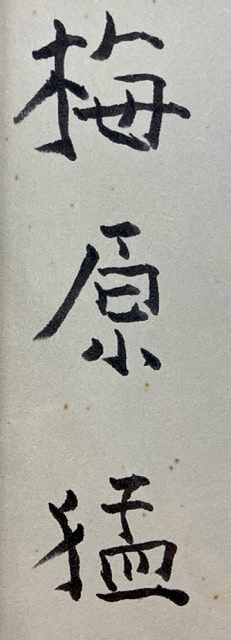 梅原猛